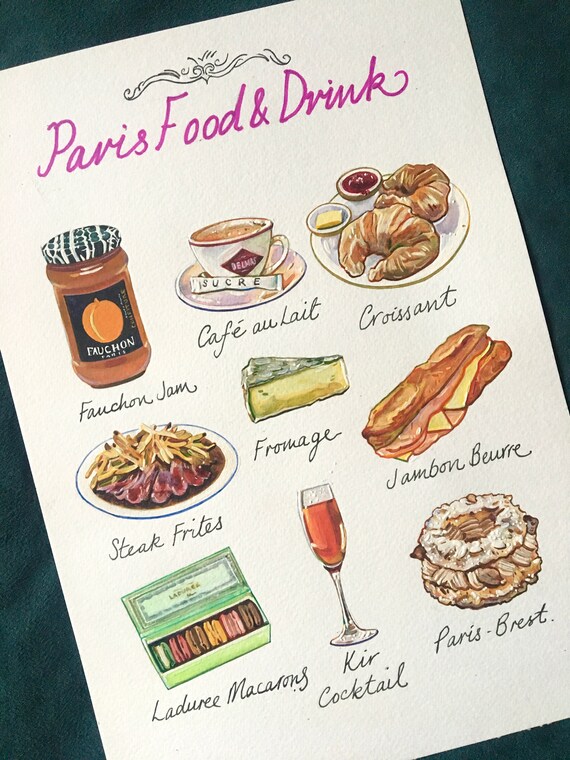 Paris Food & Drink
FAUCHON
PARIS
Fauchon Jam
DELMAS
SUCRE
Café au Lait
Croissant
Fromage
Jambon Beurre
Steak Frites
LADURÉE
Laduree Macarons
Kir
Cocktail
Paris-Brest.